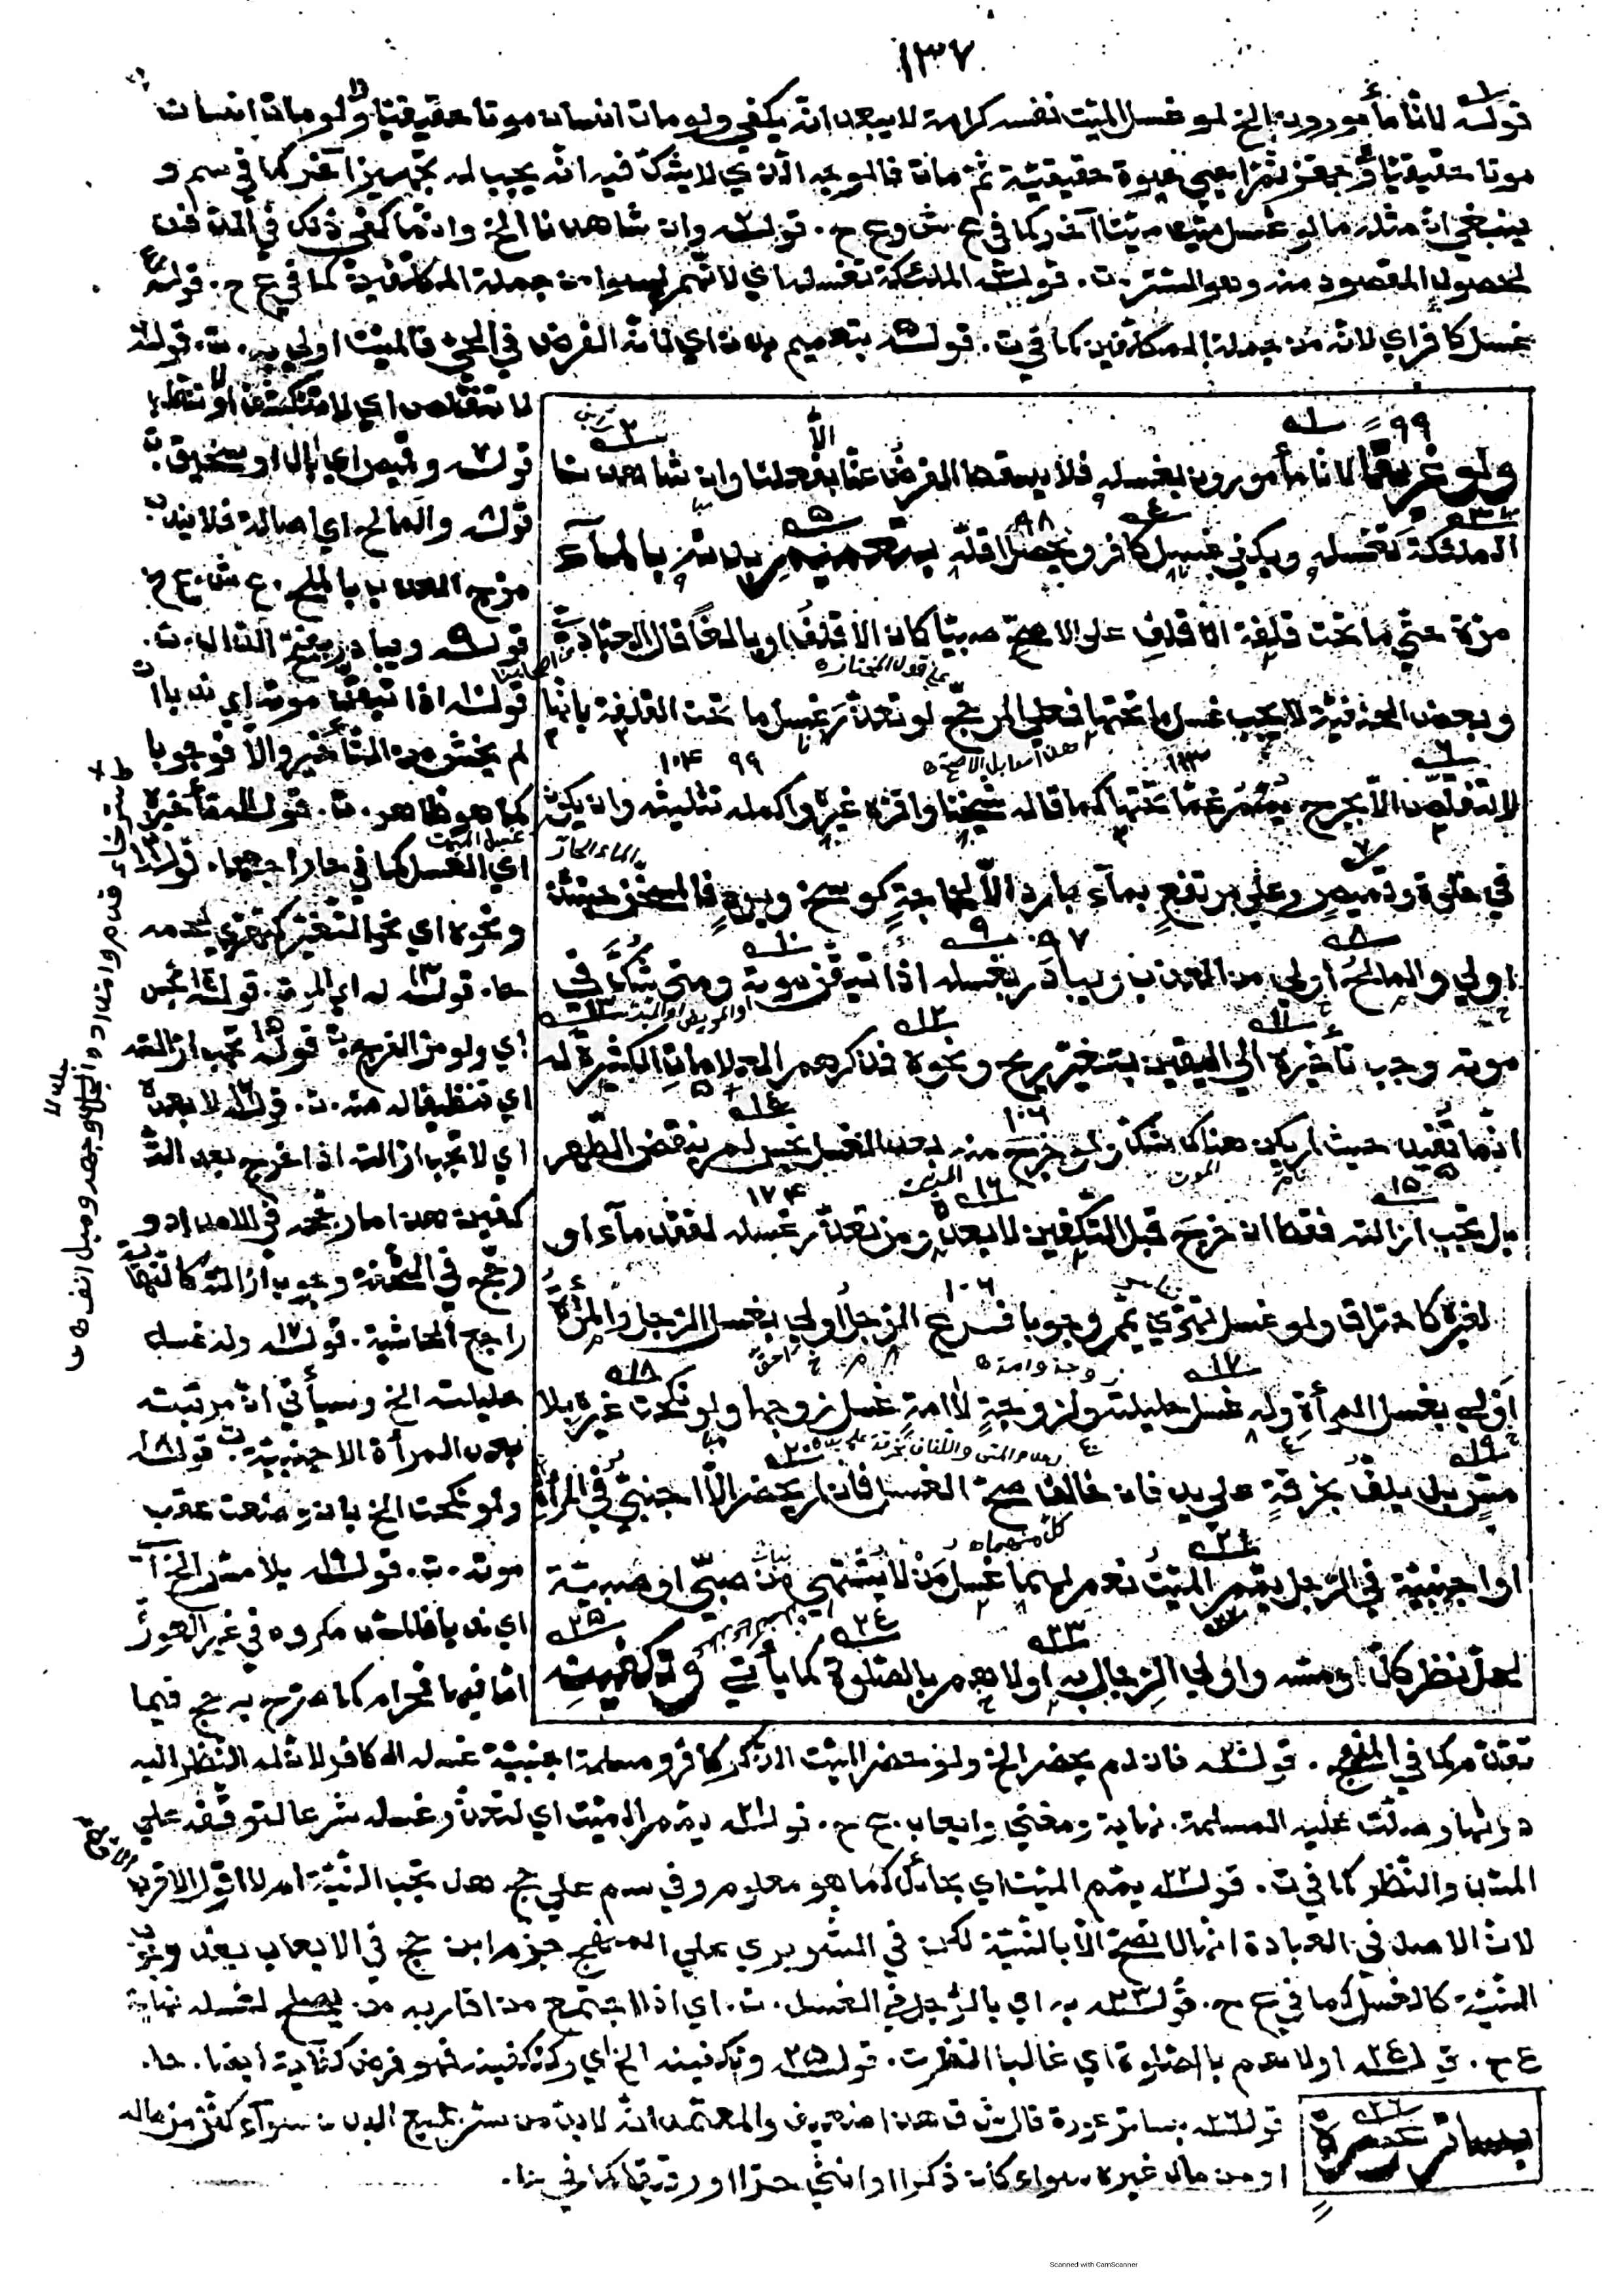 ١٣٧
قولـ١ـه لانا مأمورون الخ لو غسل الميت نفسه كرامة لا يبعد انه يكفي ولو مات انسان موتا حقيقيا ولو مات انسان
موتا حقيقيا وجهز ثم احيي حيوة حقيقية ثم مات فالوجه الذي لا يشك فيه انه يجب له تجهيز آخر كما في سم و
ينبغي ان مثله ما لو غسل ميت ميتا آخر كما في ع ش و ع ح . قولـ٢ـه وان شاهدنا الخ وانما كفى ذلك في الدفن
لحصول المقصود منه وهو الستر . ت . قولـ٣ـه الملئكة تغسله اي لانهم ليسوا من جملة المكلفين كما في ع ح . قولـ٤ـه
غسل كافر اي لانه من جملة المكلفين كما في ت . قولـ٥ـه بتعميم بدنه اي لانه الفرض في الحي فالميت اولى به . ت . قولـ٦ـه
لا تتقلص اي لا تنكشف
قولـ٧ـه وقميص اي بال او سخيف
قولـ٨ـه والمالح اي اصالة فلا يندب
مزج العذب بالملح . ع ش . ع ح
قولـ٩ـه ويبادر بفتح الدال . ت .
قولـ١٠ـه اذا تيقن موته اي ندبا ان
لم يخش من التأخير والا فوجوبا
كما هو ظاهر . ت . قولـ١١ـه تأخيره
اي الغسل كما في
ونحوه اي نحو التغير كتهري لحمه
قولـ١٣ـه له اي الموت . قولـ١٤ـه نجس
اي ولو من الفرج . قولـ١٥ـه تجب ازالته
اي تنظيفا له منه . ت . قولـ١٦ـه لا بعده
اي لا تجب ازالته اذا خرج بعد الت
كفين هذا ما رجحه في الامداد و
رجح في التحفة وجوب ازالته
قولـ١٧ـه وله غسل
حليلته الخ وسيأتي ان مرتبته
بعد المرأة الاجنبية . قولـ١٨ـه
ولو نكحت الخ بان وضعت عقب
موته . ت . قولـ١٩ـه بلا مس الخ
اي ندبا فاللمس مكروه في غير العورة
اما فيها فحرام كما صرح به حج فيما
ولو غريقا لانا مأمورون بغسله فلا يسقط الفرض عنا الا بفعلنا وان شاهدنا
الملئكة تغسله ويكفي غسل كافر ويحصل اقله بتعميم بدنه بالماء
مرة حتى ما تحت قلفة الاقلف على الاصح صبيا كان الاقلف او بالغا قال العبادي
وبعض الحنفية لا يجب غسل ما تحتها فعلى المرجح لو تعذر غسل ما تحت القلفة بانها
لا تتقلص الا بجرح يمم عما تحتها كما قاله شيخنا واقره غيره واكمله تثليثه وان يكون
في خلوة وقميص وعلى مرتفع بماء بارد الا لحاجة كوسخ وبرد فالمسخن حينئذ
اولى والمالح اولى من العذب ويبادر بغسله اذا تيقن موته ومتى شك في
موته وجب تأخيره الى اليقين بتغير ريح ونحوه فذكرهم العلامات الكثيرة له
انما تفيد حيث لم يكن هناك شك ولو خرج منه بعد الغسل نجس لم ينقض الطهر
بل تجب ازالته فقط ان خرج قبل التكفين لا بعده ومن تعذر غسله لفقد ماء او
لغيره كاحتراق ولو غسل تهرى يمم وجوبا فرع الرجل اولى بغسل الرجل والمرأة
اولى بغسل المرأة وله غسل حليلته ولزوجة لا امة غسل زوجها ولو نكحت غيره بلا
مس بل بلف خرقة على يد فان خالف صح الغسل فان لم يحضر الا اجنبي في المرأة
او اجنبية في الرجل يمم الميت نعم لهما غسل من لا يشتهى من صبي او صبية
لحل نظر كل ومسه واولى الرجال به اولاهم بالصلوة كما يأتي وتكفينه
تقدم كما في المنهج . قولـ٢٠ـه فان لم يحضر الخ ولو حضر الميت الذكر كافر ومسلمة اجنبية غسله الكافر لان له النظر اليه
دونها وصلت عليه المسلمة . نهاية ومغني وايعاب . ع ح . قولـ٢١ـه يمم الميت اي لتعذر غسله شرعا لتوقفه على
المس والنظر كما في ت . قولـ٢٢ـه يمم الميت اي بحائل كما هو معلوم وفي سم على حج هل تجب النية ام لا اقول الاقرب الاول
لان الاصل في العبادة انها لا تصح الا بالنية لكن في الشوبري على المنهج جزم ابن حج في الايعاب بعدم وجوب
النية كالغسل كما في ع ح . قولـ٢٣ـه به اي بالرجل في الغسل . ت . اي اذا اجتمع من اقاربه من يصلح لغسله نهاية
ع ح . قولـ٢٤ـه اولاهم بالصلوة اي غالبا انظر ت . قولـ٢٥ـه وتكفينه الخ اي وتكفينه فهو فرض كفاية ايضا .
بساتر عورة
قولـ٢٦ـه بساتر عورة قال ش ق هذا ضعيف والمعتمد انه لا بد من ستر جميع البدن سواء كفن من ماله
او من مال غيره سواء كان ذكرا او انثى حرا او رقيقا كما في
Scanned with CamScanner